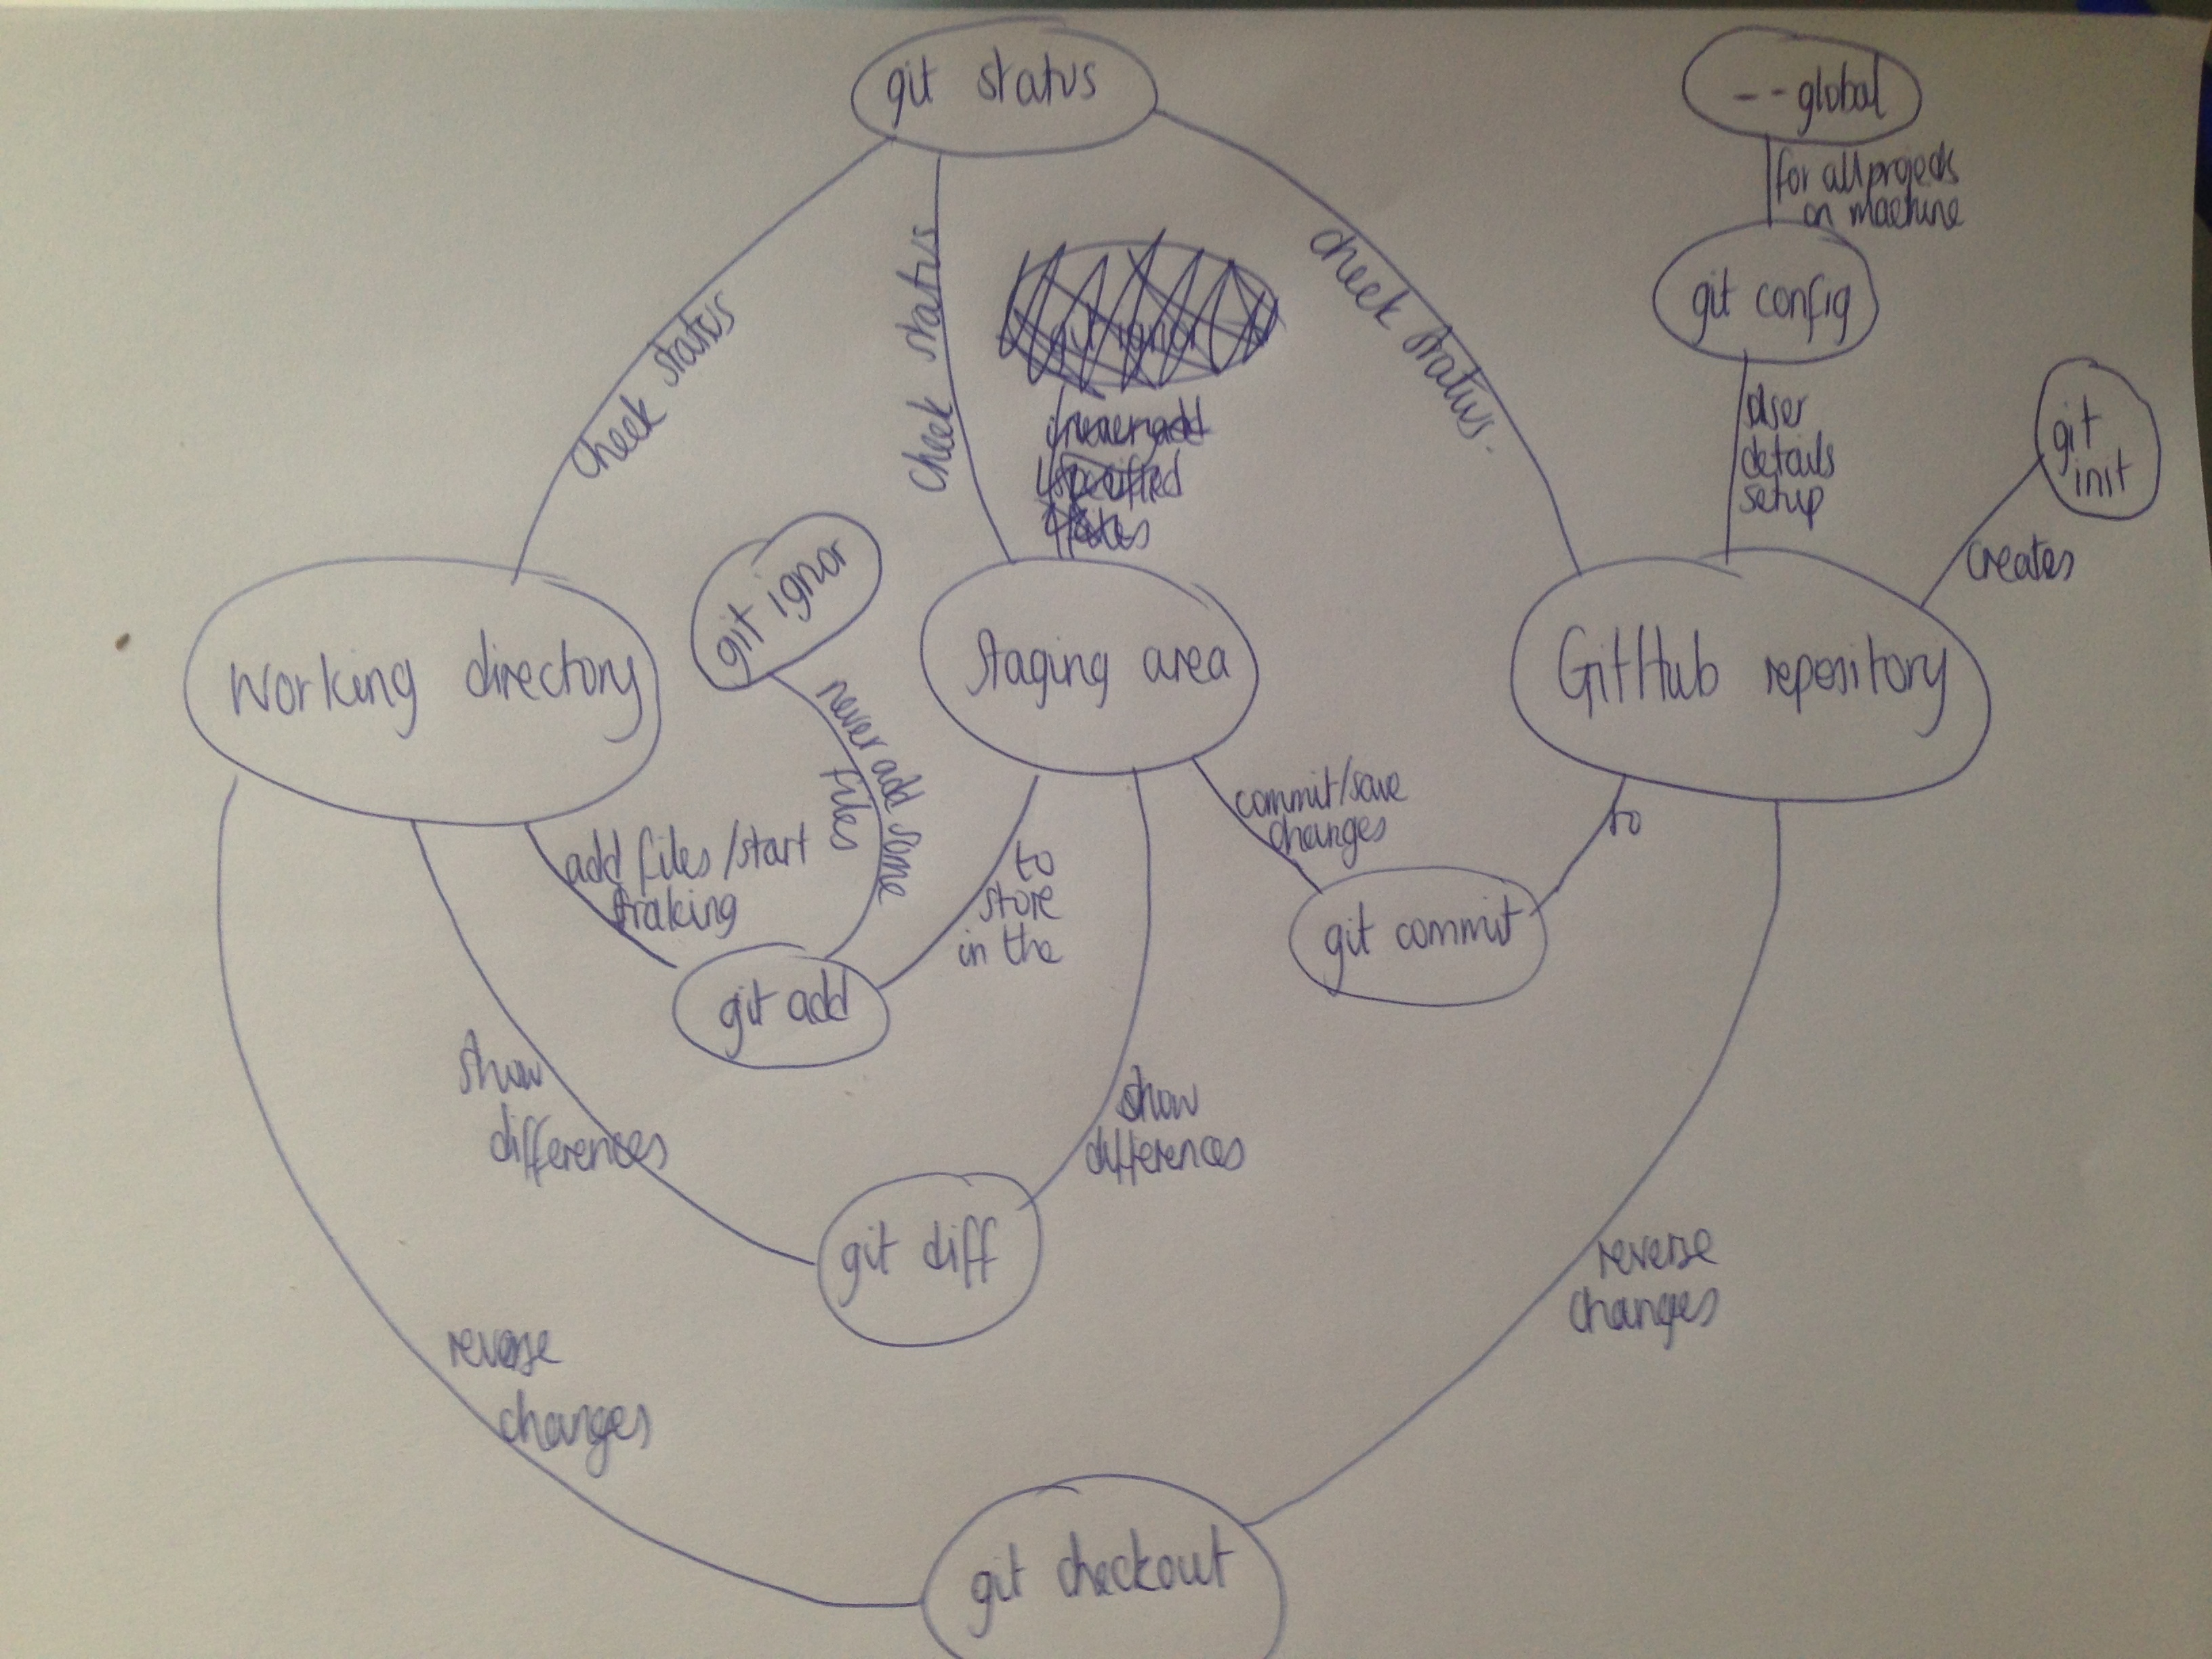 git status
--global
for all projects
on machine
git config
user
details
setup
git
init
creates
check status
check status
check status.
git ignor
never add
specified
files
git ignor
never add some
files
Working directory
Staging area
GitHub repository
add files/start
traking
to
store
in the
commit/save
changes
to
git add
git commit
show
differences
show
differences
git diff
reverse
changes
reverse
changes
git checkout